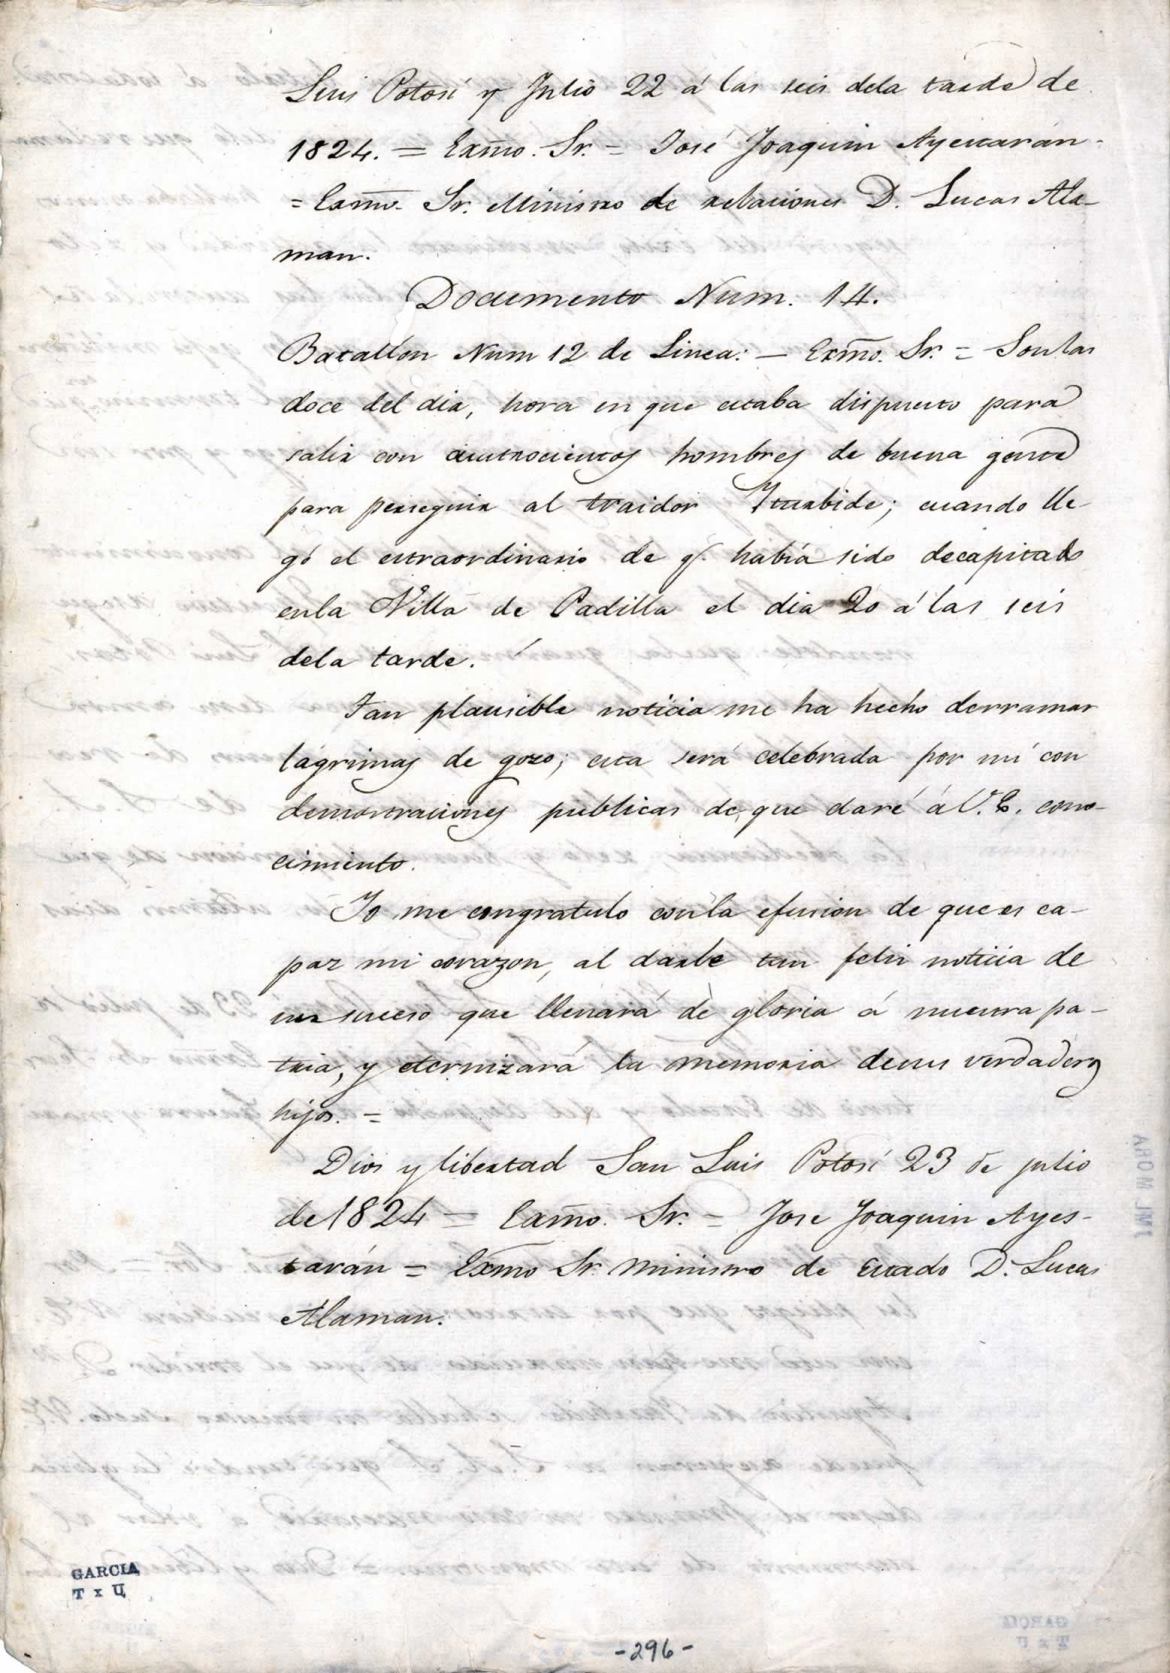 Luis Potosí y Julio 22 á las seis dela tarde de
1824. = Exmo. Sr. = José Joaquin Ayestarán-
= Exmo. Sr. Ministro de relaciones D. Lucas Ala-
man.
Documento Num. 14.
Batallon Num 12 de Linea: — Exmo. Sr. = Son las
doce del dia, hora en que estaba dispuesto para
salir con cuatrocientos hombres de buena gente
para perseguir al traidor Iturbide; cuando lle-
gó el estraordinario de q. habia sido decapitado
enla Villa de Padilla el dia 20 á las seis
dela tarde.
Tan plausible noticia me ha hecho derramar
lágrimas de gozo; esta será celebrada por mi con
demostraciones publicas de que daré á V. E. cono-
cimiento.
Yo me congratulo conla efusion de que es ca-
paz mi corazon, al darle tan feliz noticia de
un suceso que llenará de gloria á nuestra pa-
tria, y eternizará la memoria desus verdaderos
hijos. =
Dios y libertad San Luis Potosí 23 de julio
de 1824 = Exmo. Sr. = Jose Joaquin Ayes-
tarán = Exmo Sr. Ministro de Estado D. Lucas
Alaman.
GARCIA
T x Ц
-296-